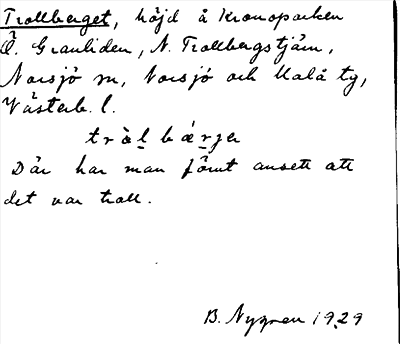 Trollberget, höjd å Kronoparken
Ö. Granliden, N. Trollbergstjärn,
Norsjö sn, Norsjö och Malå tg,
Västerb. l.
tròlbærjer
Där har man förut ansett att
det var troll.
B. Nygren 1929